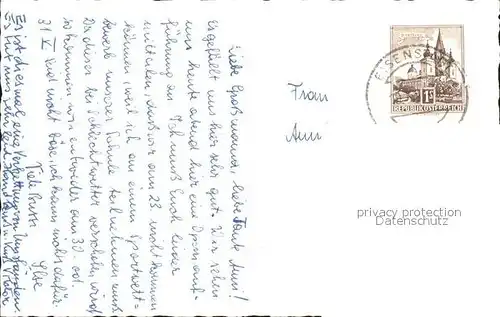 Liebe Großmama, liebe Tante Anni!
gefällt uns hier sehr gut. Wir sehen
uns heute abend hier eine Opernauf-
führung an. Ich muß Euch leider
mitteilen, daß wir am 23. nicht kommen
können, weil ich an einem Sportwett-
bewerb unserer Schule teilnehmen muß.
Da dieser bei Schlechtwetter verschoben wird
so kommen wir entweder am 30. od.
31. Seid nicht böse, ich kann nichts dafür.
Viele Bussi
Ilse
Es ist diesmal eine
Es tut uns sehr leid
Frau
Anni
EISENST
REPUBLIK ÖSTERREICH
1S
privacy protection
Datenschutz